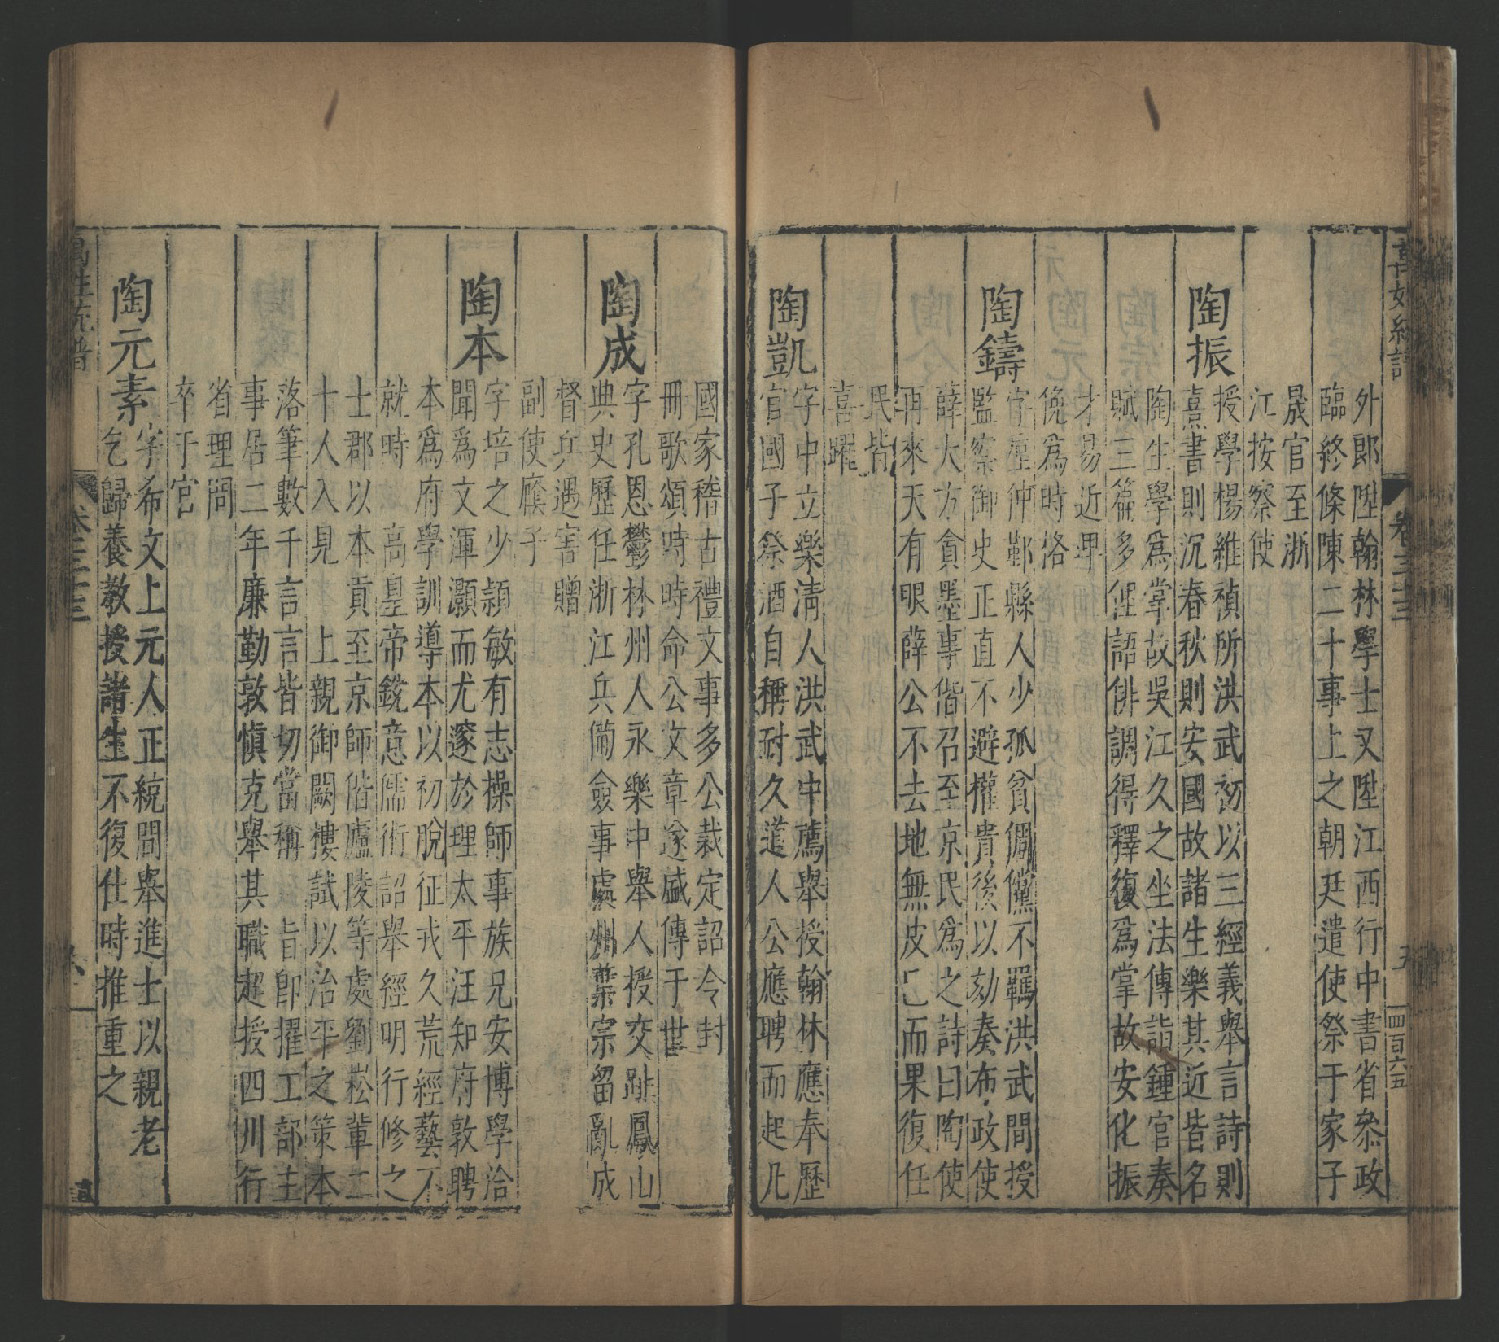 萬姓統譜
卷三十三
五
四百六五
外郎陞翰林學士又陞江西行中書省叅政
臨終條陳二十事上之朝廷遣使祭于家子
晟官至浙
江按察使
陶振
授學楊維禎所洪武初以三經義舉言詩則
熹書則沉春秋則安國故諸生樂其近皆名
陶生學爲掌故吳江久之坐法傳詣鍾官奏
賦三篇多俚語俳調得釋復爲掌故安化振
才易近畀
俛爲時恪
陶鑄
字壓仲鄞縣人少孤貧倜儻不羈洪武間授
監察御史正直不避權貴後以劾奏布政使
薛大方貪墨事偕召至京民爲之詩曰陶使
再來天有眼薛公不去地無皮已而果復任
民皆
喜躍
陶凱
字中立樂淸人洪武中薦舉授翰林應奉歷
官國子祭酒自稱耐久道人公應聘而起凡
國家稽古禮文事多公裁定詔令封
冊歌頌時時命公文章遂盛傳于世
陶成
字孔恩鬱林州人永樂中舉人授交趾鳳山
典史歷任浙江兵備僉事處州葉宗留亂成
督兵遇害贈
副使廕子
陶本
字培之少穎敏有志操師事族兄安博學洽
聞爲文渾灝而尤邃於理太平汪知府敦聘
本爲府學訓導本以初脫征戎久荒經藝不
就時 高皇帝鋭意儒術詔舉經明行修之
士郡以本貢至京師偕廬陵等處劉崧輩二
十人入見 上親御闕樓試以治平之策本
落筆數千言言皆切當稱 旨卽擢工部主
事居二年廉勤敦愼克舉其職超授四川行
省理問
卒于官
陶元素
字希文上元人正統間舉進士以親老
乞歸養教授諸生不復仕時推重之
萬姓統譜
卷三十三